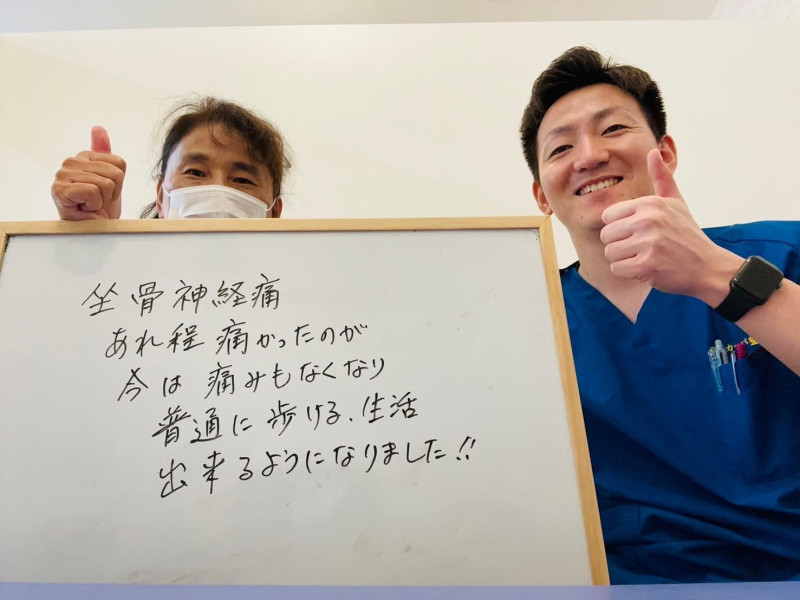 坐骨神経痛
あれ程痛かったのが
今は痛みもなくなり
普通に歩ける、生活
出来るようになりました!!